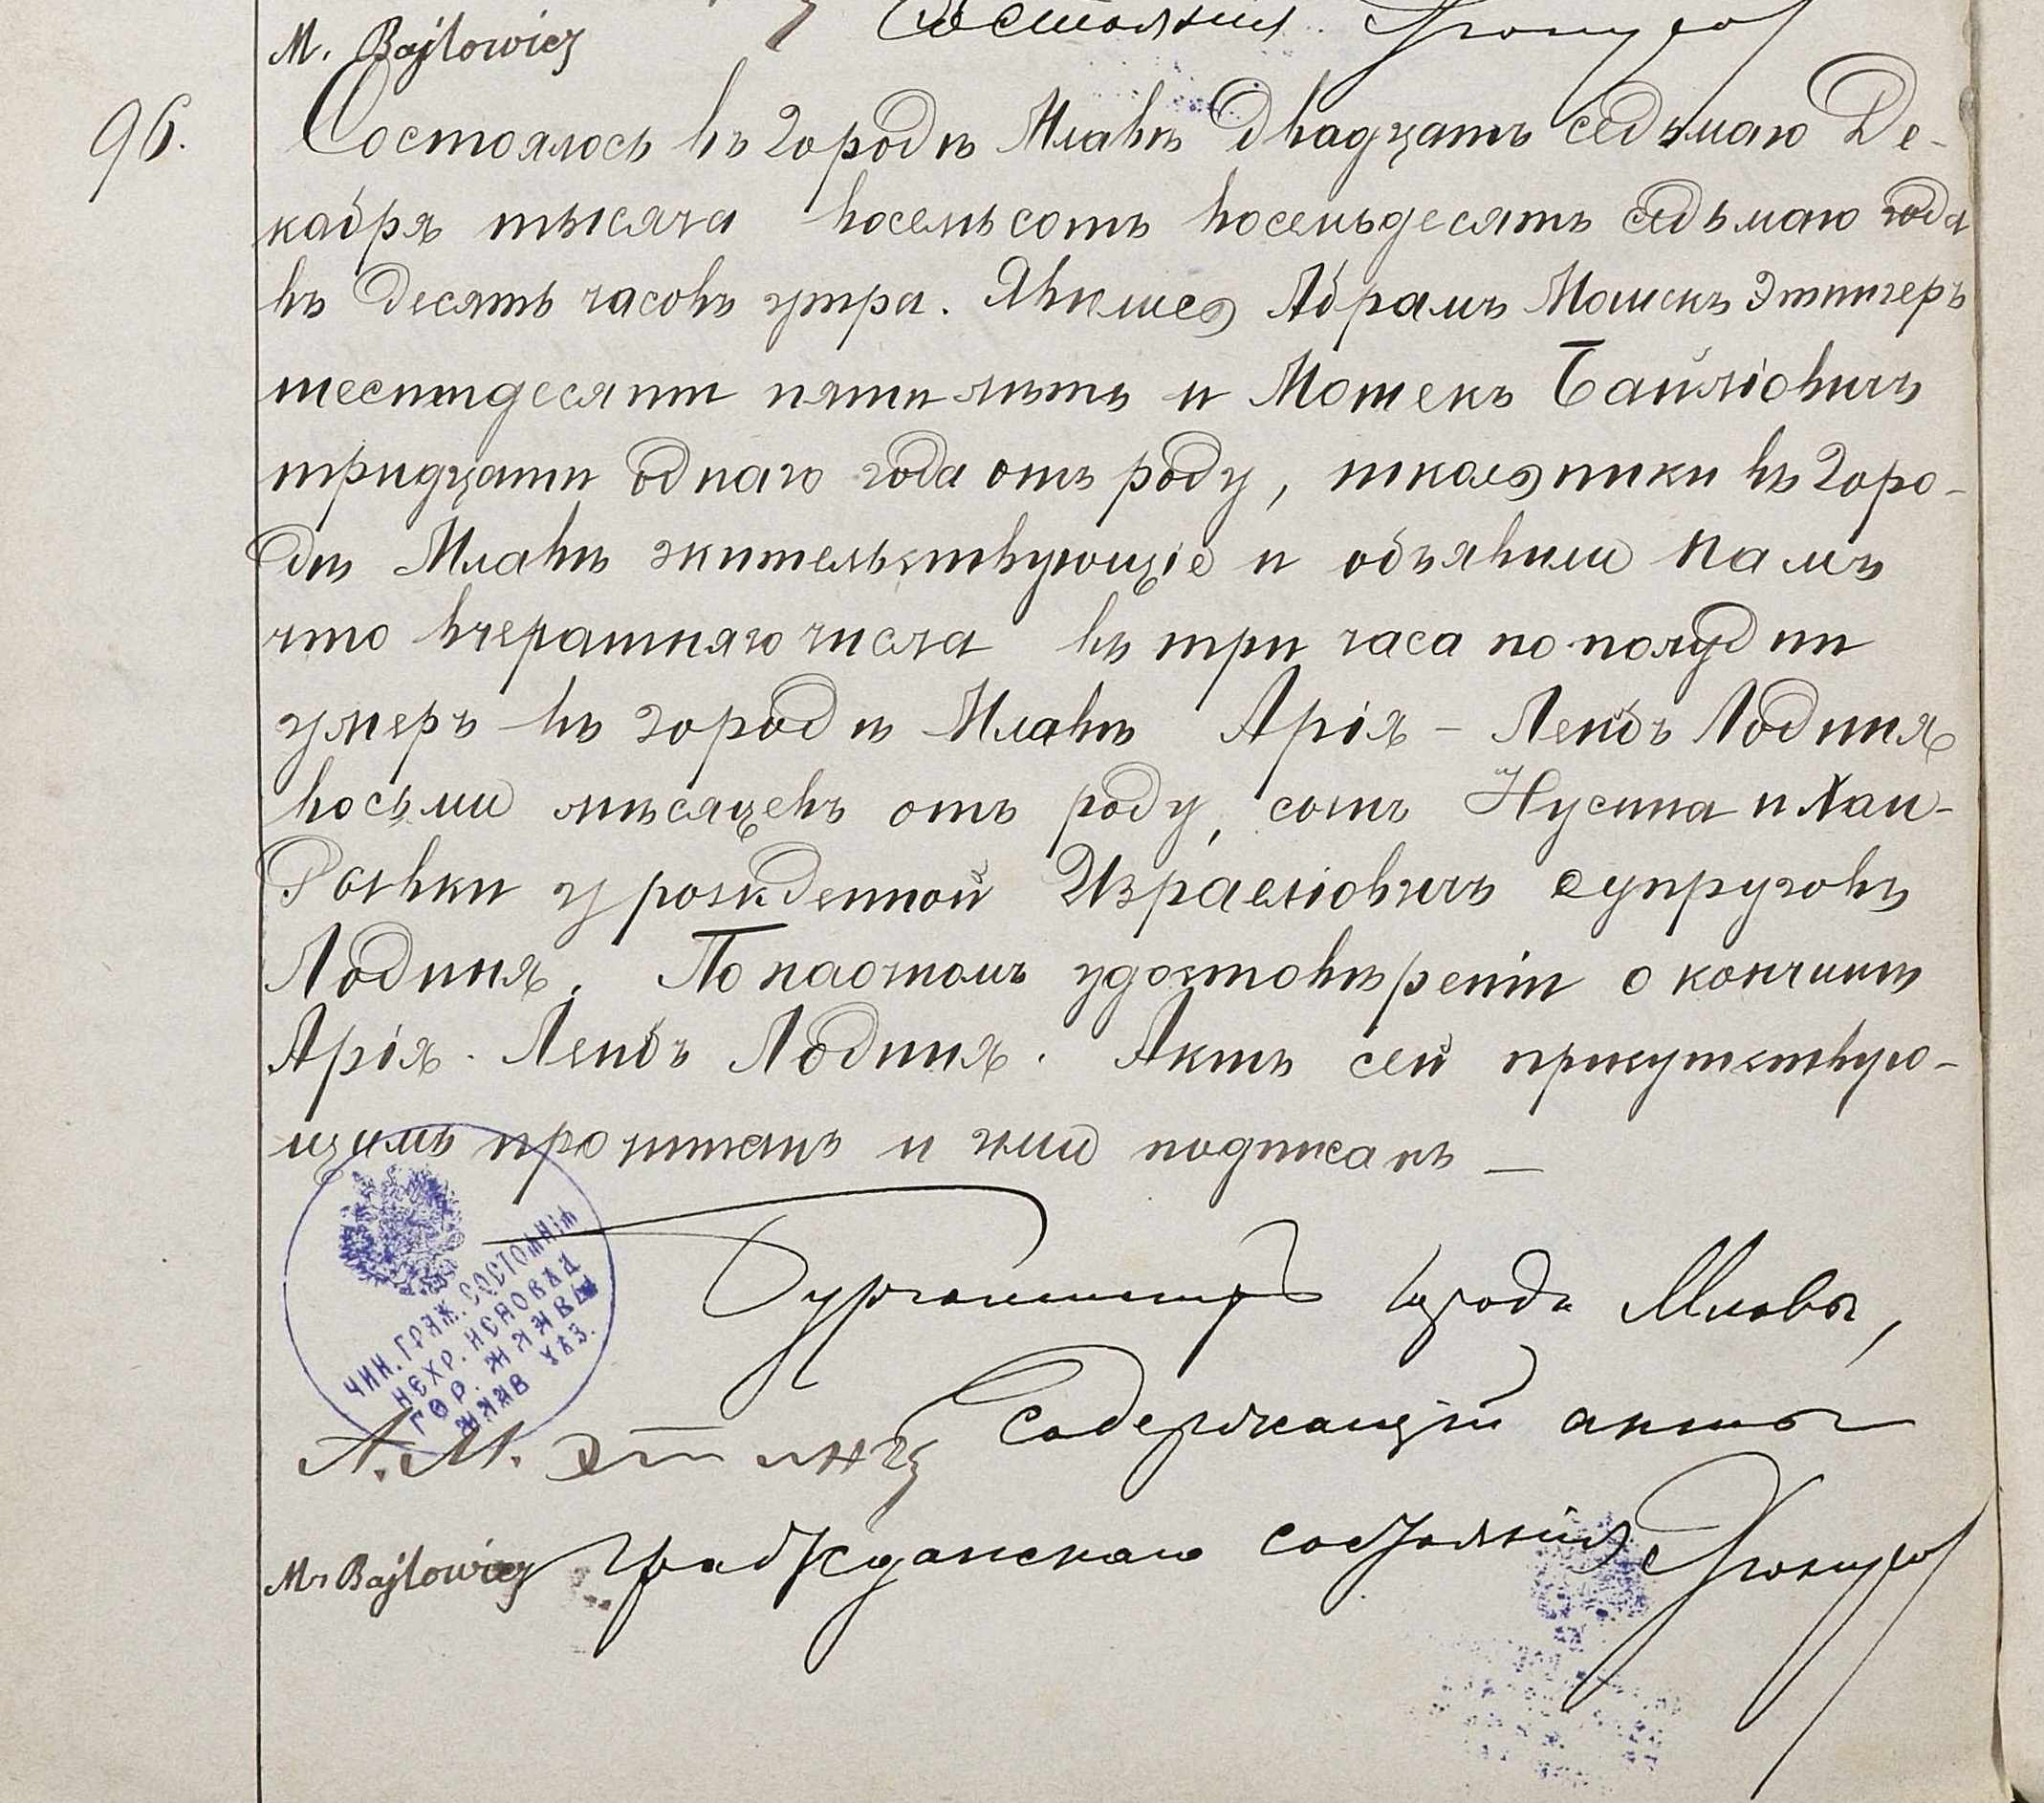 M. Bajlowicz Состоянія
96. Состоялось въ городѣ Млавѣ двадцать седьмаго Де-
кабря тысяча восемьсотъ восемьдесятъ седьмаго года
въ десять часовъ утра. Явился Абрамъ Мошекъ Этингеръ
шестидесяти пяти лѣтъ и Мошекъ Байліовичъ
тридцати однаго года отъ роду, школьники въ горо-
дѣ Млавѣ жительствующіе и объявили намъ
что вчерашняго числа въ три часа по полудни
умеръ въ городѣ Млавѣ Арія - Лейбъ Лодиня
восьми мѣсяцевъ отъ роду, сынъ Нусина и Хаи-
Ройзки урожденной Израеліовичъ супруговъ
Лодиня. По настомъ удостовѣреніи о кончинѣ
Арія. Лейбъ Лодиня. Актъ сей присутствую-
щимъ прочитанъ и ими подписанъ —
Бургомистръ города Млавы,
ЧИН. ГРАЖ. СОСТОЯНІЯ
НЕХР. ИСПОВѢД
ГОР. МЛАВЫ
МЛАВ УѢЗ.
Содержащій акты
А. М. Этинг
Гражданскаго состоянія
M. Bajlowicz